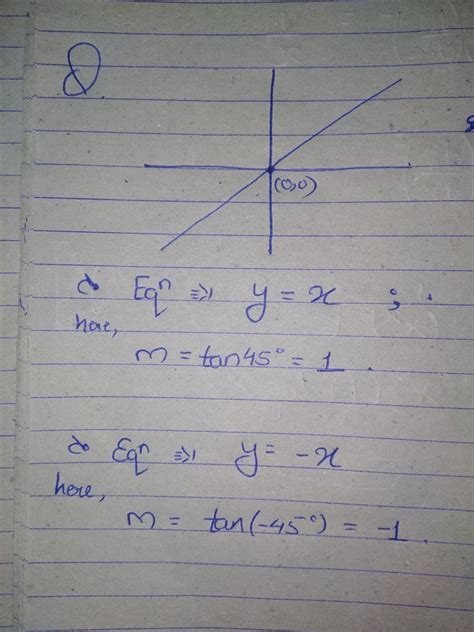 Q
(0,0)
Eqⁿ ⇒ y = x ;
here,
m = tan45° = 1.
Eqⁿ ⇒ y = -x
here,
m = tan(-45°) = -1.